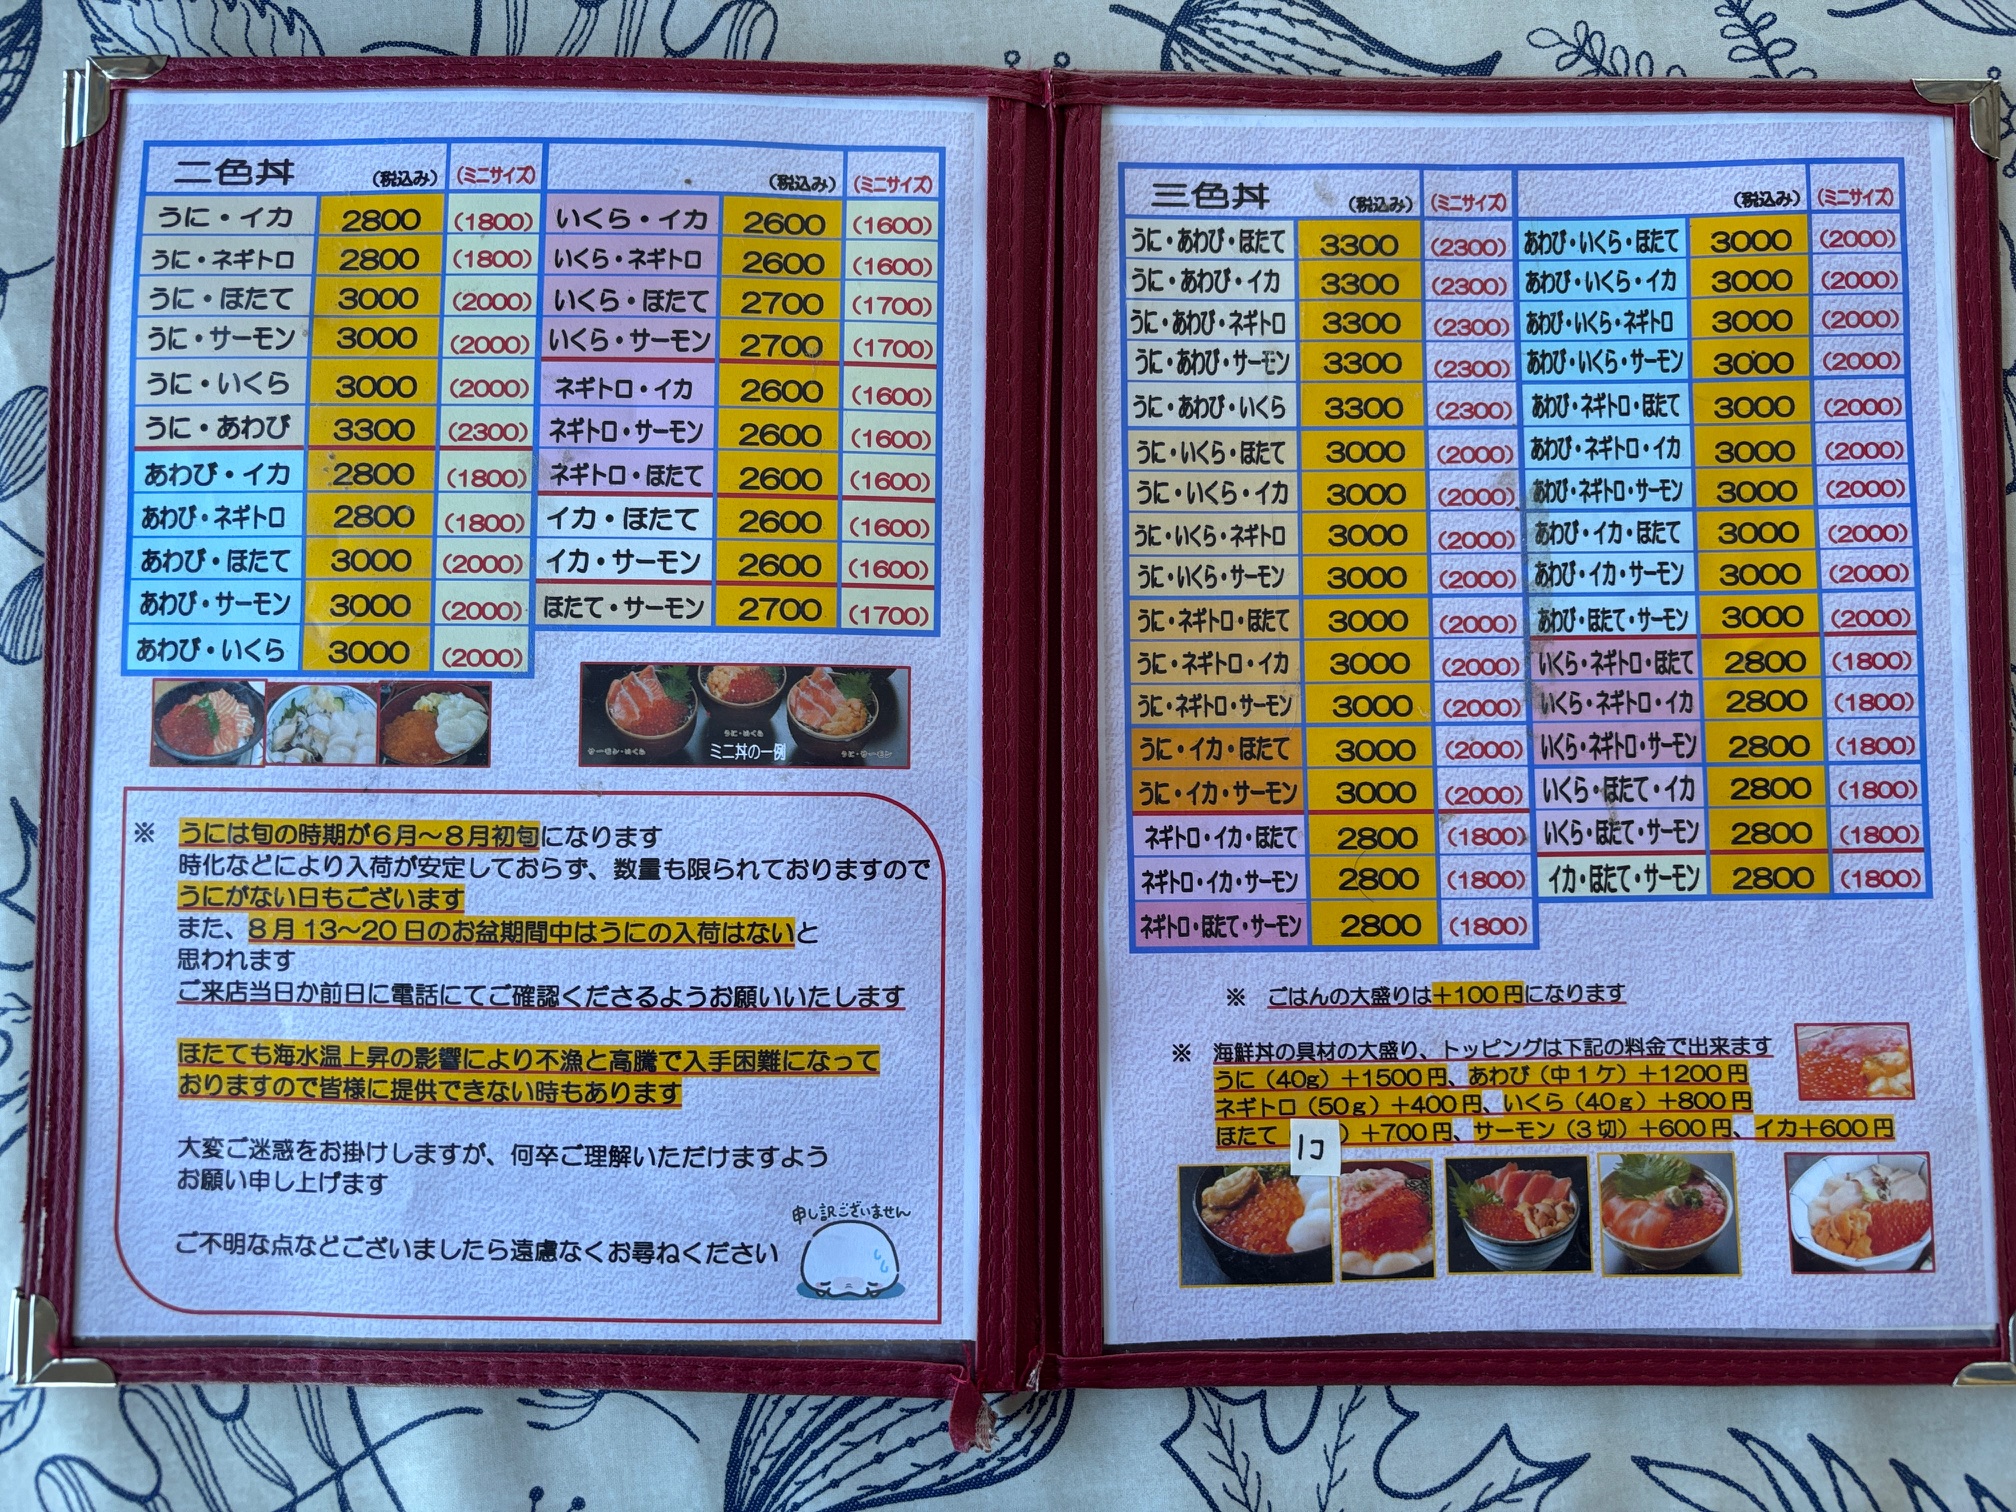 二色丼 (税込み) (ミニサイズ) (税込み) (ミニサイズ)
うに・イカ 2800 (1800) いくら・イカ 2600 (1600)
うに・ネギトロ 2800 (1800) いくら・ネギトロ 2600 (1600)
うに・ほたて 3000 (2000) いくら・ほたて 2700 (1700)
うに・サーモン 3000 (2000) いくら・サーモン 2700 (1700)
うに・いくら 3000 (2000) ネギトロ・イカ 2600 (1600)
うに・あわび 3300 (2300) ネギトロ・サーモン 2600 (1600)
あわび・イカ 2800 (1800) ネギトロ・ほたて 2600 (1600)
あわび・ネギトロ 2800 (1800) イカ・ほたて 2600 (1600)
あわび・ほたて 3000 (2000) イカ・サーモン 2600 (1600)
あわび・サーモン 3000 (2000) ほたて・サーモン 2700 (1700)
あわび・いくら 3000 (2000)
ミニ丼の一例
※ うには旬の時期が6月～8月初旬になります
時化などにより入荷が安定しておらず、数量も限られておりますので
うにがない日もございます
また、8月13～20日のお盆期間中はうにの入荷はないと
思われます
ご来店当日か前日に電話にてご確認くださるようお願いいたします
ほたても海水温上昇の影響により不漁と高騰で入手困難になって
おりますので皆様に提供できない時もあります
大変ご迷惑をお掛けしますが、何卒ご理解いただけますよう
お願い申し上げます
申し訳ございません
ご不明な点などございましたら遠慮なくお尋ねください
三色丼 (税込み) (ミニサイズ) (税込み) (ミニサイズ)
うに・あわび・ほたて 3300 (2300) あわび・いくら・ほたて 3000 (2000)
うに・あわび・イカ 3300 (2300) あわび・いくら・イカ 3000 (2000)
うに・あわび・ネギトロ 3300 (2300) あわび・いくら・ネギトロ 3000 (2000)
うに・あわび・サーモン 3300 (2300) あわび・いくら・サーモン 3000 (2000)
うに・あわび・いくら 3300 (2300) あわび・ネギトロ・ほたて 3000 (2000)
うに・いくら・ほたて 3000 (2000) あわび・ネギトロ・イカ 3000 (2000)
うに・いくら・イカ 3000 (2000) あわび・ネギトロ・サーモン 3000 (2000)
うに・いくら・ネギトロ 3000 (2000) あわび・イカ・ほたて 3000 (2000)
うに・いくら・サーモン 3000 (2000) あわび・イカ・サーモン 3000 (2000)
うに・ネギトロ・ほたて 3000 (2000) あわび・ほたて・サーモン 3000 (2000)
うに・ネギトロ・イカ 3000 (2000) いくら・ネギトロ・ほたて 2800 (1800)
うに・ネギトロ・サーモン 3000 (2000) いくら・ネギトロ・イカ 2800 (1800)
うに・イカ・ほたて 3000 (2000) いくら・ネギトロ・サーモン 2800 (1800)
うに・イカ・サーモン 3000 (2000) いくら・ほたて・イカ 2800 (1800)
ネギトロ・イカ・ほたて 2800 (1800) いくら・ほたて・サーモン 2800 (1800)
ネギトロ・イカ・サーモン 2800 (1800) イカ・ほたて・サーモン 2800 (1800)
ネギトロ・ほたて・サーモン 2800 (1800)
※ ごはんの大盛りは+100円になります
※ 海鮮丼の具材の大盛り、トッピングは下記の料金で出来ます
うに（40g）+1500円、あわび（中1ケ）+1200円
ネギトロ（50g）+400円、いくら（40g）+800円
ほたて 1コ ）+700円、サーモン（3切）+600円、イカ+600円